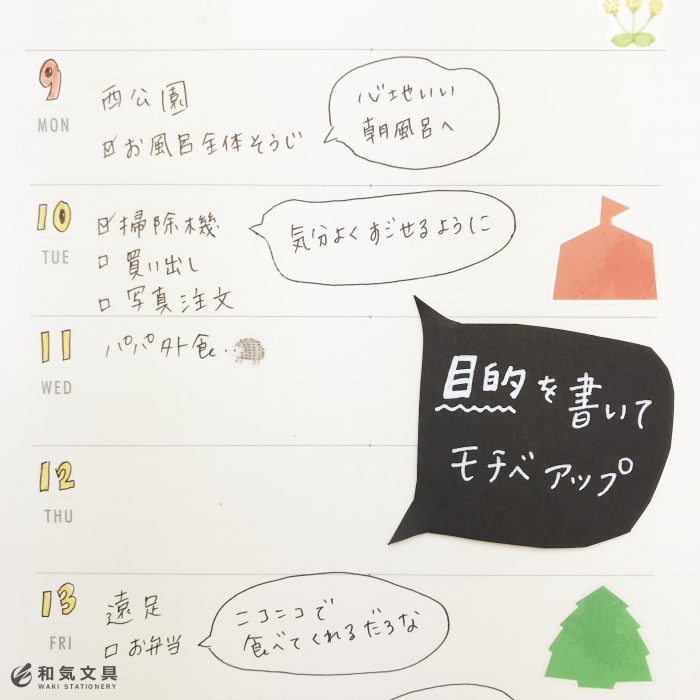 9
MON
西公園
お風呂全体そうじ
心地いい
朝風呂へ
10
TUE
掃除機
買い出し
写真注文
気分よくすごせるように
11
WED
パパ外食..
目的を書いて
モチベアップ
12
THU
13
FRI
遠足
お弁当
ニコニコで
食べてくれるだろな
和気文具
WAKI STATIONERY